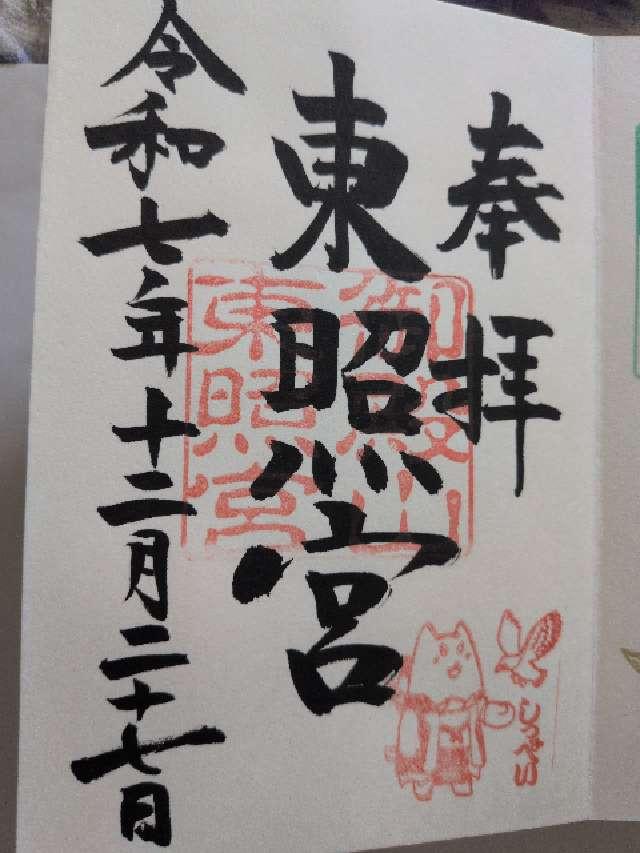 奉拝
東照宮
令和七年十二月二十七日
御殿山
東照宮
しっぺい